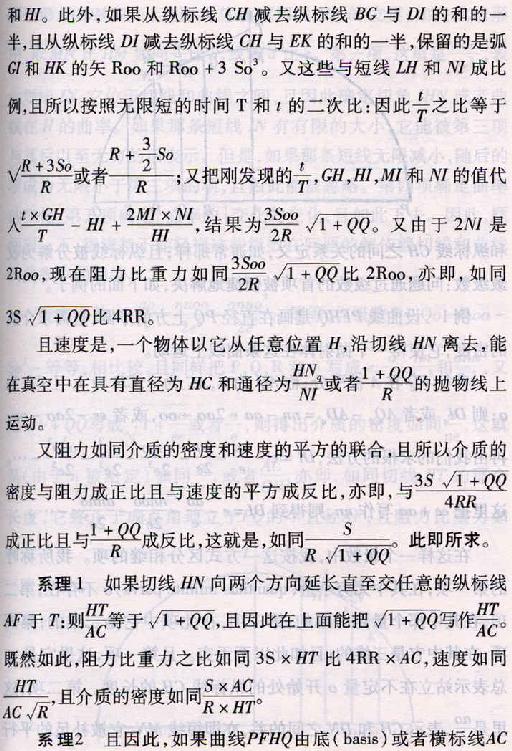 和HI。此外,如果从纵标线 CH 减去纵标线 BG 与 DI 的和的一
半,且从纵标线 DI 减去纵标线 CH 与 EK 的和的一半,保留的是弧
GI 和 HK 的矢 Roo 和 Roo + 3 So³。又这些与短线 LH 和 NI 成比
例,且所以按照无限短的时间 T 和 t 的二次比:因此 t/T 之比等于
√(R+3So)/R 或者 (R+3/2So)/R;又把刚发现的 t/T,GH,HI,MI 和 NI 的值代
入 (t×GH)/T - HI + (2MI×NI)/HI,结果为 3Soo/2R √1+QQ。又由于 2NI 是
2Roo,现在阻力比重力如同 3Soo/2R √1+QQ 比 2Roo,亦即,如同
3S √1+QQ 比 4RR。
且速度是,一个物体以它从任意位置 H,沿切线 HN 离去,能
在真空中在具有直径为 HC 和通径为 HNq/NI 或者 (1+QQ)/R 的抛物线上
运动。
又阻力如同介质的密度和速度的平方的联合,且所以介质的
密度与阻力成正比且与速度的平方成反比,亦即,与 3S √1+QQ/4RR
成正比且与 (1+QQ)/R 成反比,这就是,如同 S/(R √1+QQ)。此即所求。
系理1 如果切线 HN 向两个方向延长直至交任意的纵标线
AF 于 T:则 HT/AC 等于 √1+QQ,且因此在上面能把 √1+QQ 写作 HT/AC。
既然如此,阻力比重力之比如同 3S × HT 比 4RR × AC,速度如同
HT/(AC √R),且介质的密度如同 (S×AC)/(R×HT)。
系理2 且因此,如果曲线PFHQ由底(basis)或者横标线AC